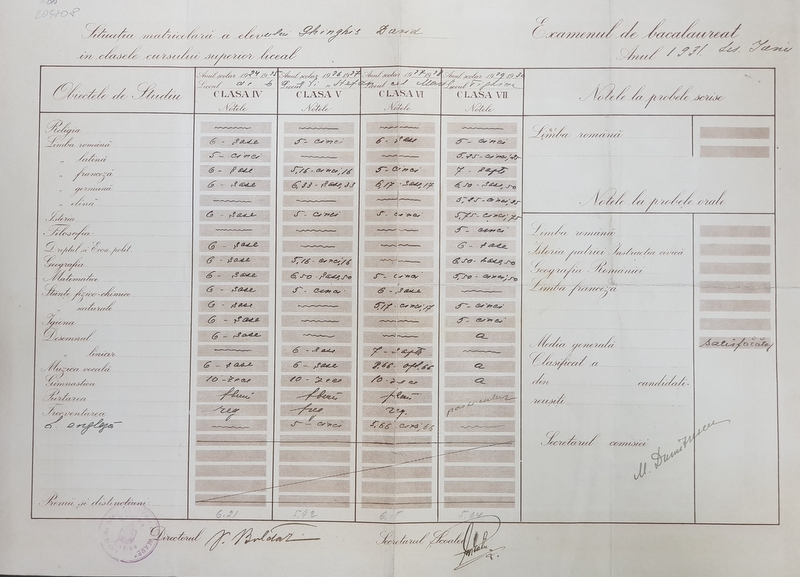 Situația matricolară a elevului Ghinghis David
în clasele cursului superior liceal
Examenul de bacalaureat
Anul 1931 ses. Iunie
Obiectele de Studiu
Anul școlar 1924 1925
Liceul
CLASA IV
Notele
Anul școlar 1926 1927
Liceul
CLASA V
Notele
Anul școlar 1927 1928
Liceul
CLASA VI
Notele
Anul școlar 1929 1930
Liceul
CLASA VII
Notele
Religia
Limba română 6 - șase 5 - cinci 6 - șase 5 - cinci
„ latină 5 - cinci
„ franceză 6 - șase 5,16 - cinci,16 5 - cinci 7 - șapte
„ germană 6 - șase 6,33 - șase,33 6,17 - șase,17 6,50 - șase,50
„ elenă
Istoria 6 - șase 5 - cinci 5 - cinci 5,75 - cinci,75
Filosofia 5 - cinci
Dreptul și Econ. polit. 6 - șase 6 - șase
Geografia 6 - șase 5,16 - cinci,16 6,50 - șase,50
Matematice 6 - șase 6,50 - șase,50 5 - cinci 5,50 - cinci,50
Științe fizico-chimice 6 - șase 5 - cinci 6 - șase
„ naturale 6 - șase 5,17 - cinci,17 5 - cinci
Igiena 6 - șase 5 - cinci
Desemnul 6 - șase a
„ liniar 6 - șase 7 - șapte
Muzica vocală 6 - șase 6 - șase 8,66 - opt,66 a
Gimnastica 10 - zece 10 - zece 10 - zece a
Purtarea
Frecventarea reg reg.
L. engleză 5 - cinci 5,66 cinci,66
Premii și distincțiuni
6.21
Notele la probele scrise
Limba română
Notele la probele orale
Limba română
Istoria patriei Instrucția civică
Geografia României
Limba franceză
Media generală satisfăcător
Clasificat a
din candidați
reușiți
Secretarul comisiei
M. Dumitrescu
Directorul
Secretarul Școalei